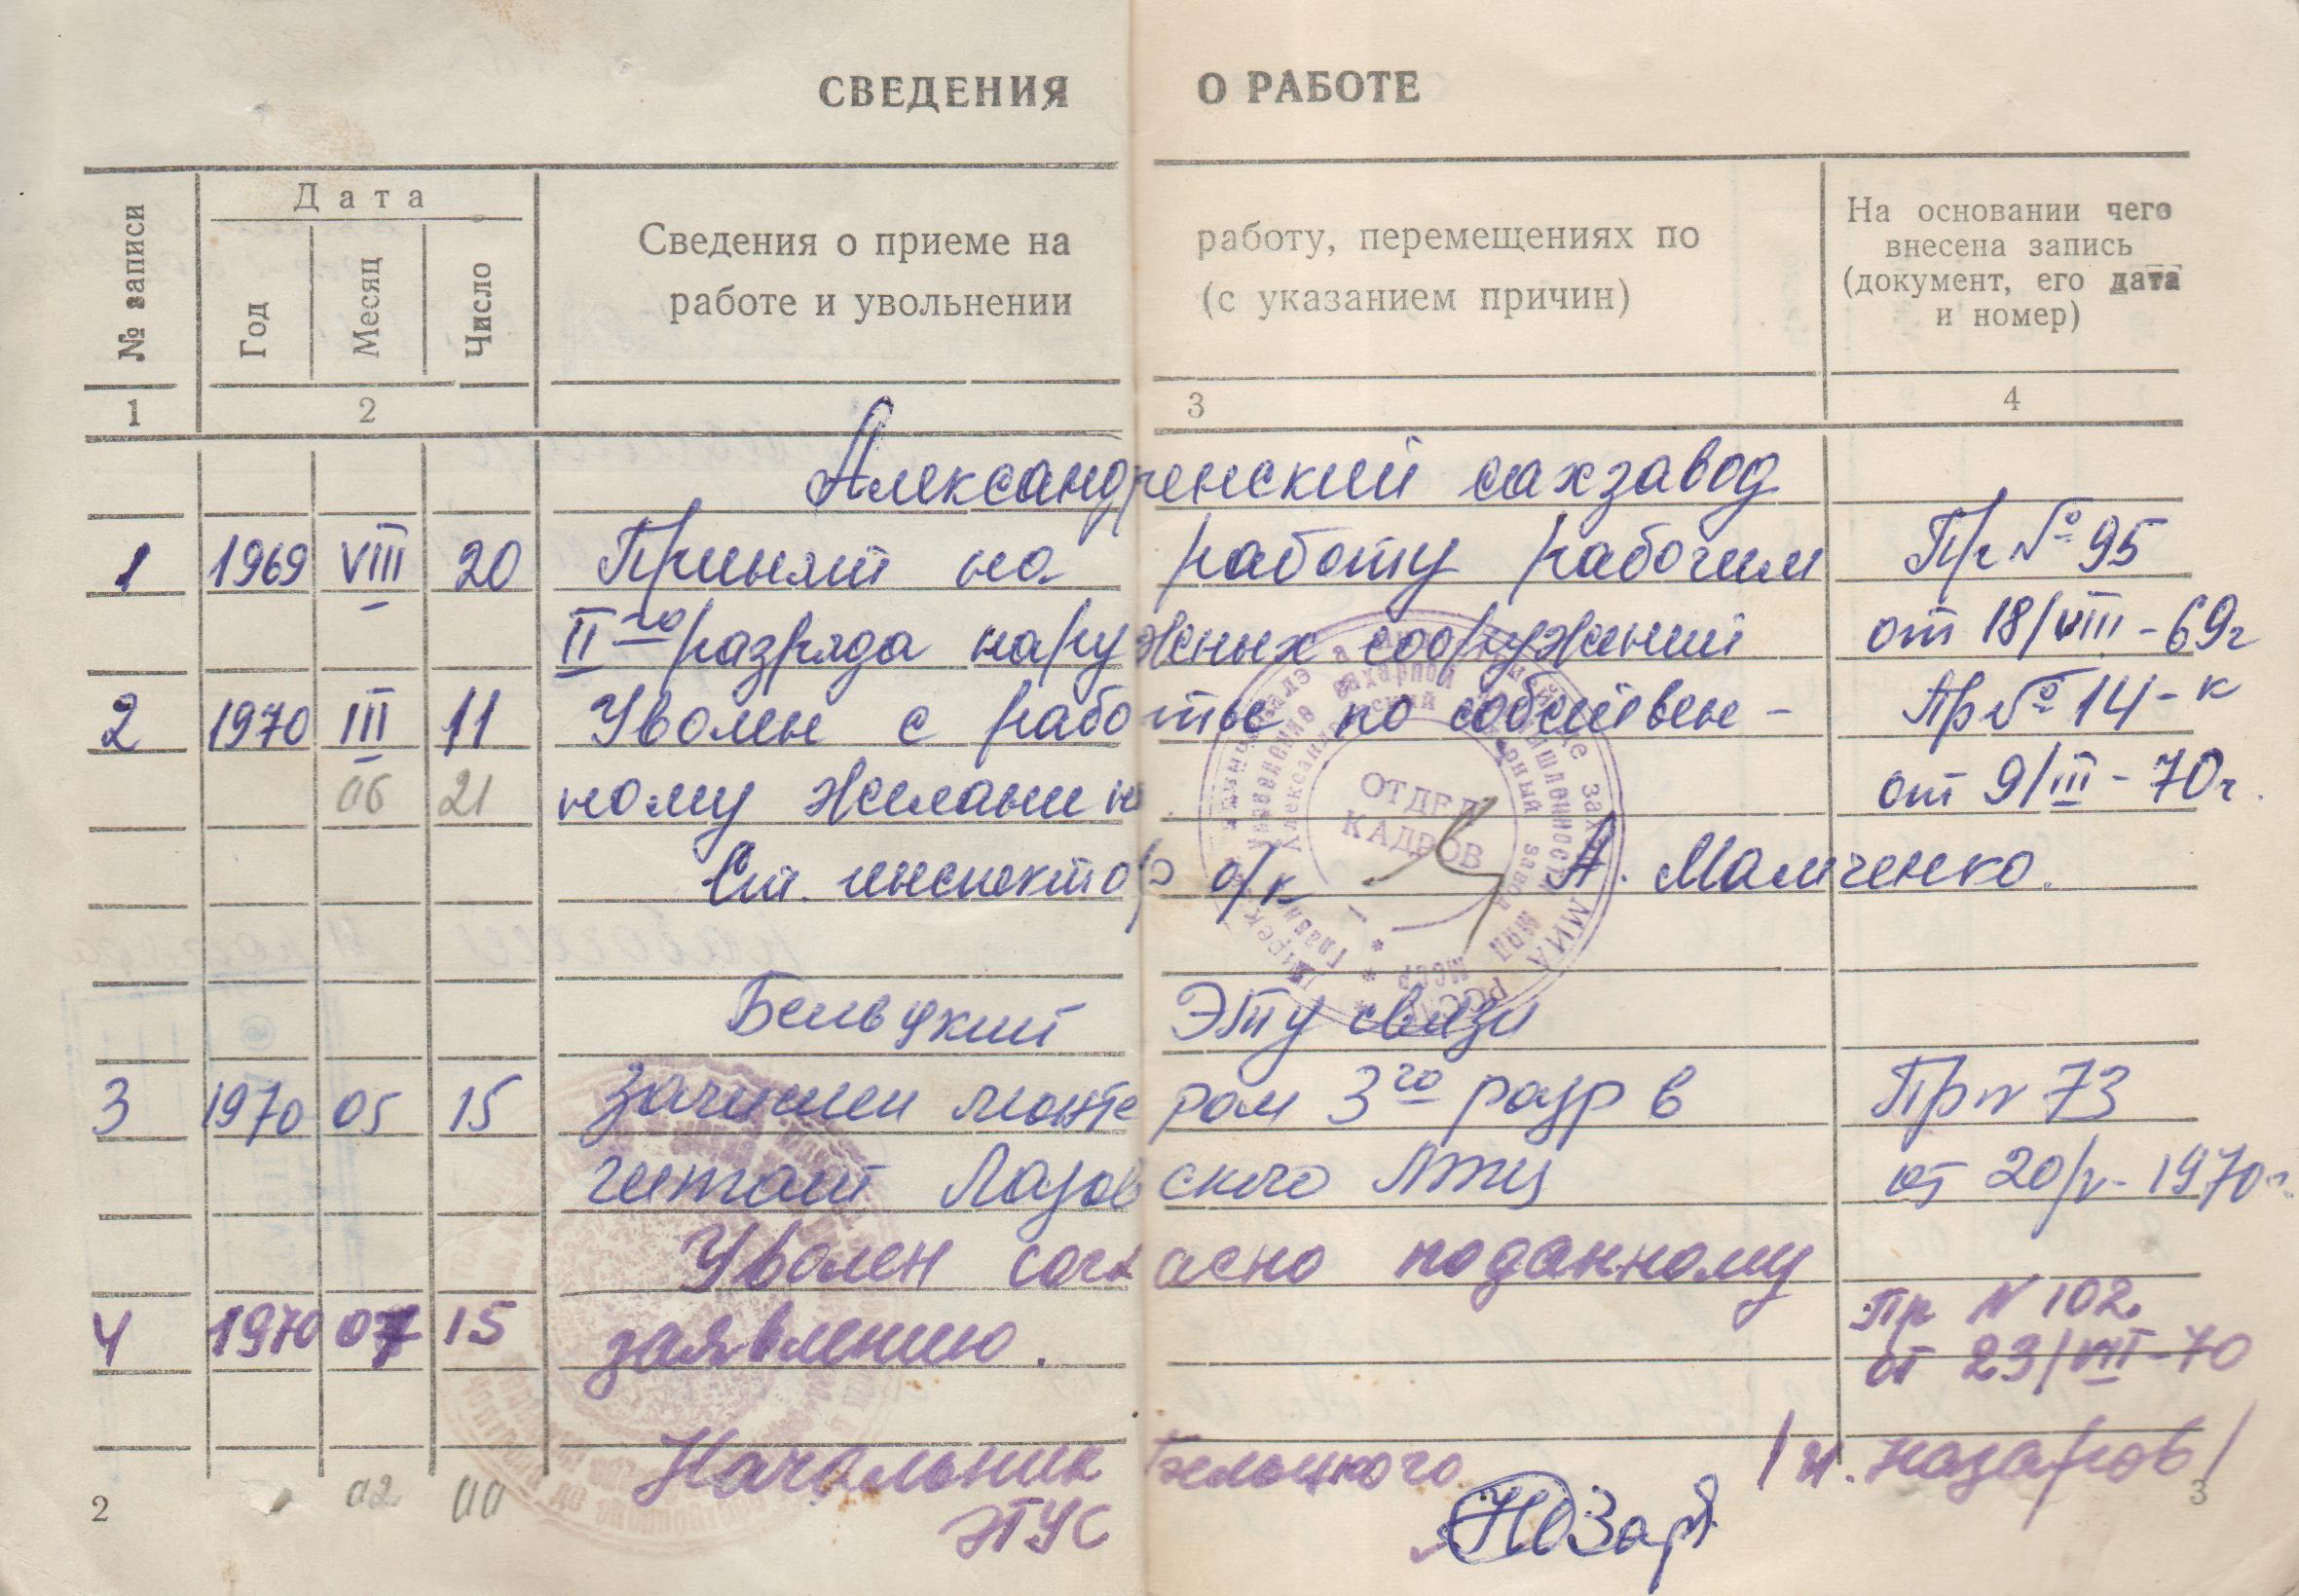 СВЕДЕНИЯ О РАБОТЕ
№ записи
Дата
Год Месяц Число
Сведения о приеме на работу, перемещениях по
работе и увольнении (с указанием причин)
На основании чего
внесена запись
(документ, его дата
и номер)
1 2 3 4
Александренский сахзавод
1 1969 VIII 20 Принят на работу рабочим Пр № 95
II го разряда наружных сооружений от 18/VIII-69г
2 1970 III 11 Уволен с работы по собствен- Пр № 14-к
06 21 ному желанию. от 9/III-70г.
Ст. инспектор о/к А. Мамченко.
ОТДЕЛ
КАДРОВ
Бельцкий ЭТУ связи
3 1970 05 15 Зачислен монтером 3го разр в Пр N 73
Лазовского от 20/V-1970г.
Уволен согласно поданному
4 1970 07 15 заявлению. Пр N 102.
от 23/VII-70
Начальник Бельцкого /Н. Назаров/
ЭТУС
02
2 3